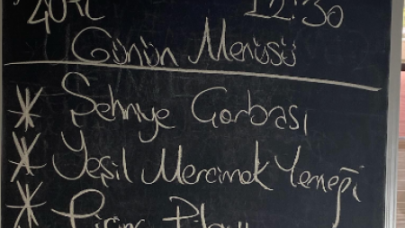 40TL 12:30
Günün Menüsü
* Şehriye Çorbası
* Yeşil Mercimek Yemeği
* Pirinç Pilavı